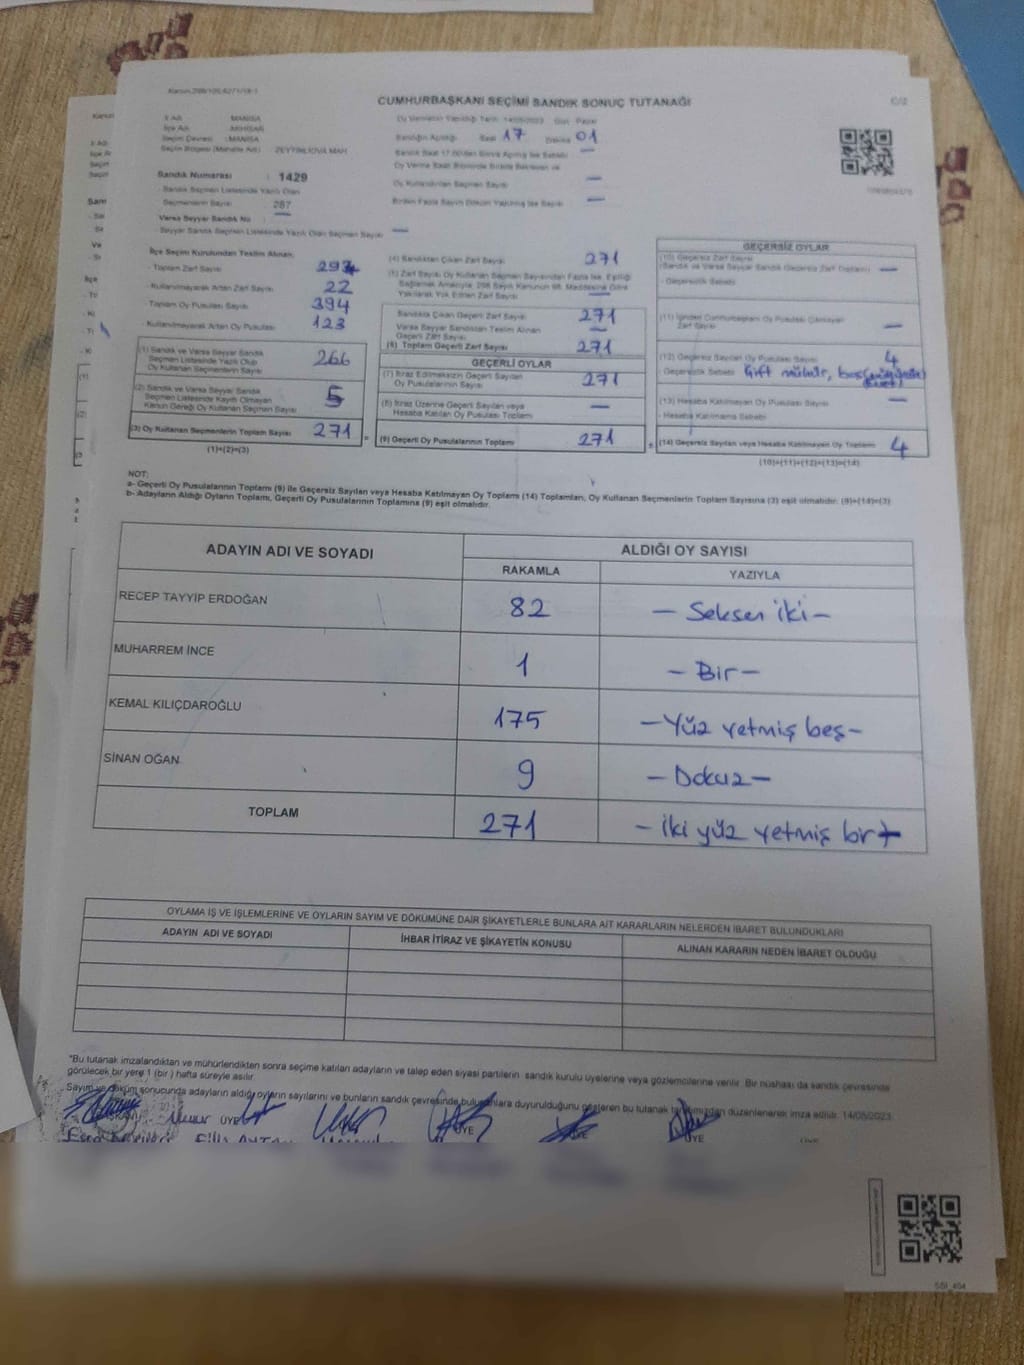 CUMHURBAŞKANI SEÇİMİ SANDIK SONUÇ TUTANAĞI
İl Adı : MANİSA
İlçe Adı : AKHİSAR
Seçim Çevresi : MANİSA
Seçim Bölgesi (Mahalle Adı) : ZEYTİNLİOVA MAH.
Sandık Numarası : 1429
Sandık Seçmen Listesinde Yazılı Olan
Seçmenlerin Sayısı : 287
Varsa Seyyar Sandık No : —
Seyyar Sandık Seçmen Listesinde Yazılı Olan Seçmen Sayısı —
Oy Vermenin Yapıldığı Tarih: 14/05/2023 Gün: Pazar
Sandığın Açıldığı Saat 17 Dakika 01
Oy Kullandırılan Seçmen Sayısı —
Birden Fazla Sayım Döküm Yapılmış İse Sayısı —
İlçe Seçim Kurulundan Teslim Alınan;
- Toplam Zarf Sayısı
- Kullanılmayarak Artan Zarf Sayısı 22
- Toplam Oy Pusulası Sayısı 394
- Kullanılmayarak Artan Oy Pusulası 123
(1) Sandık ve Varsa Seyyar Sandık
Seçmen Listesinde Yazılı Olup
Oy Kullanan Seçmenlerin Sayısı 266
(2) Sandık ve Varsa Seyyar Sandık
Seçmen Listesinde Kayıtlı Olmayan
Kanun Gereği Oy Kullanan Seçmen Sayısı 5
(3) Oy Kullanan Seçmenlerin Toplam Sayısı 271
(1)+(2)=(3)
(4) Sandıktan Çıkan Zarf Sayısı 271
(5) Zarf Sayısı Oy Kullanan Seçmen Sayısından Fazla İse, Eşitliği
Sağlamak Amacıyla; 298 Sayılı Kanunun 98. Maddesine Göre
Yakılarak Yok Edilen Zarf Sayısı —
Sandıkta Çıkan Geçerli Zarf Sayısı 271
Varsa Seyyar Sandıktan Teslim Alınan
Geçerli Zarf Sayısı —
(6) Toplam Geçerli Zarf Sayısı 271
GEÇERLİ OYLAR
(7) İtiraz Edilmeksizin Geçerli Sayılan
Oy Pusulalarının Sayısı 271
(8) İtiraz Üzerine Geçerli Sayılan veya
Hesaba Katılan Oy Pusulası Toplamı —
(9) Geçerli Oy Pusulalarının Toplamı 271
GEÇERSİZ OYLAR
(10) Geçersiz Zarf Sayısı
(Sandık ve Varsa Seyyar Sandık Geçersiz Zarf Toplamı) —
- Geçersizlik Sebebi
(11) İçinden Cumhurbaşkanı Oy Pusulası Çıkmayan
Zarf Sayısı —
(12) Geçersiz Sayılan Oy Pusulası Sayısı 4
- Geçersizlik Sebebi Çift mühür, boş
(13) Hesaba Katılmayan Oy Pusulası Sayısı —
- Hesaba Katılmama Sebebi
(14) Geçersiz Sayılan veya Hesaba Katılmayan Oy Toplamı 4
(10)+(11)+(12)+(13)=(14)
NOT:
a- Geçerli Oy Pusulalarının Toplamı (9) ile Geçersiz Sayılan veya Hesaba Katılmayan Oy Toplamı (14) Toplamları, Oy Kullanan Seçmenlerin Toplam Sayısına (3) eşit olmalıdır. (9)+(14)=(3)
b- Adayların Aldığı Oyların Toplamı, Geçerli Oy Pusulalarının Toplamına (9) eşit olmalıdır.
ADAYIN ADI VE SOYADI ALDIĞI OY SAYISI
RAKAMLA YAZIYLA
RECEP TAYYİP ERDOĞAN 82 — Seksen iki —
MUHARREM İNCE 1 — Bir —
KEMAL KILIÇDAROĞLU 175 — Yüz yetmiş beş —
SİNAN OĞAN 9 — Dokuz —
TOPLAM 271 — iki yüz yetmiş bir —
OYLAMA İŞ VE İŞLEMLERİNE VE OYLARIN SAYIM VE DÖKÜMÜNE DAİR ŞİKAYETLERLE BUNLARA AİT KARARLARIN NELERDEN İBARET BULUNDUKLARI
ADAYIN ADI VE SOYADI İHBAR İTİRAZ VE ŞİKAYETİN KONUSU ALINAN KARARIN NEDEN İBARET OLDUĞU
"Bu tutanak imzalandıktan ve mühürlendikten sonra seçime katılan adayların ve talep eden siyasi partilerin sandık kurulu üyelerine veya gözlemcilerine verilir. Bir nüshası da sandık çevresinde
görülecek bir yere 1 (bir) hafta süreyle asılır.
Sayım ve döküm sonucunda adayların aldığı oyların sayılarını ve bunların sandık çevresinde bulunanlara duyurulduğunu gösteren bu tutanak tarafımızdan düzenlenerek imza edildi. 14/05/2023
ÜYE ÜYE ÜYE